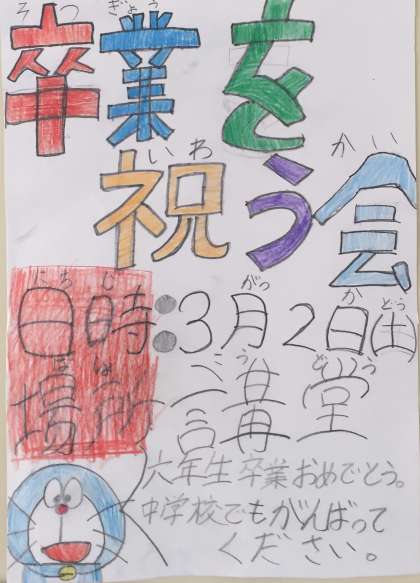 そつ ぎょう
卒業を
いわ かい
祝う会
にち じ がつ か どう
日時:3月2日(土)
ば しょ こう どう
場所:講堂
六年生卒業おめでとう。
中学校でもがんばって
ください。